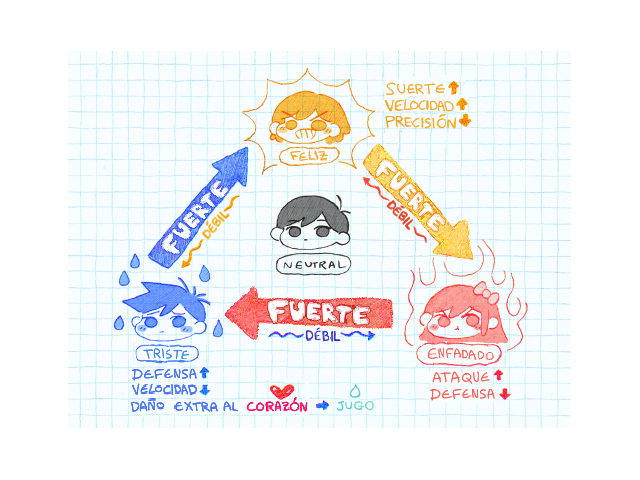 SUERTE
VELOCIDAD
PRECISIÓN
FELIZ
FUERTE
DÉBIL
FUERTE
DÉBIL
NEUTRAL
FUERTE
DÉBIL
TRISTE
ENFADADO
DEFENSA
VELOCIDAD
DAÑO EXTRA AL CORAZÓN JUGO
ATAQUE
DEFENSA